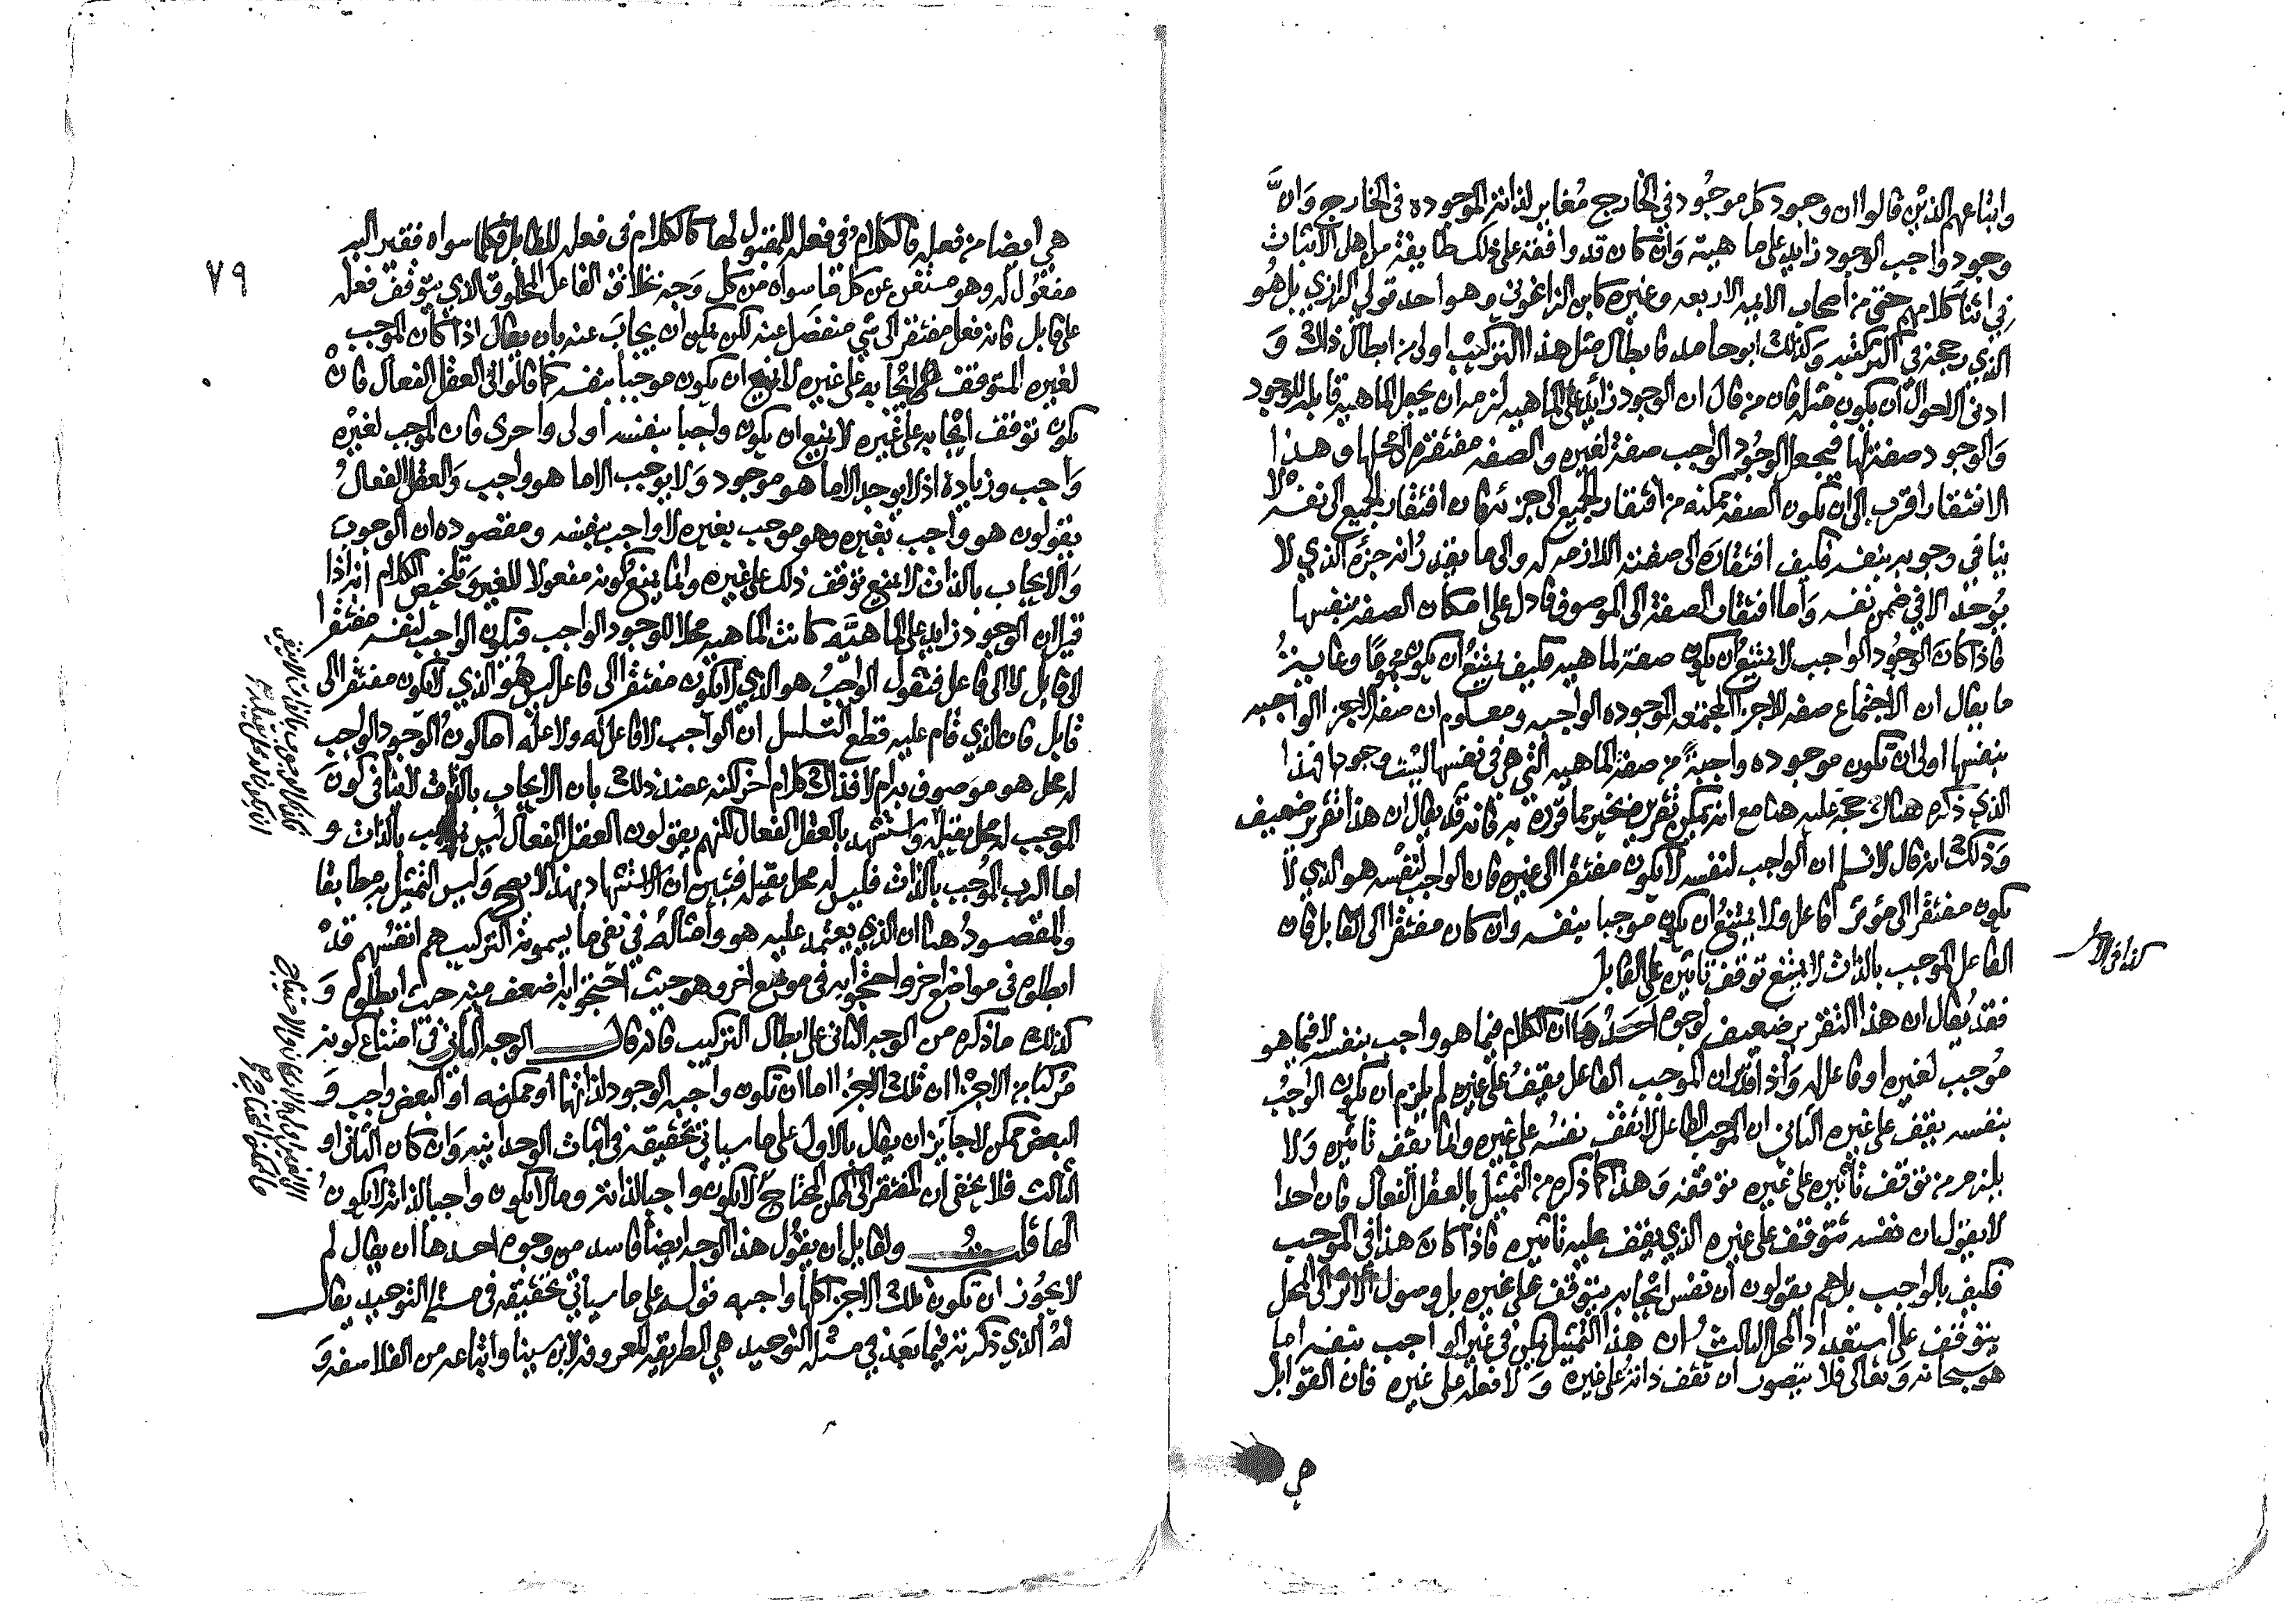 واتباعهم الذين قالوا ان وجود كل موجود في الخارج مغاير لذاته الموجوده في الخارج وان
وجود واجب الوجود زايد على ماهيته وان كان قد وافقه على ذلك طايفة من اهل الاثبات
في اثنا كلامهم حتى من اصحاب الايمه الاربعه وغيره كابن الزاغوني وهو احد قولي الرازي بل هو
الذي رجحه في اكثر كتبه وكذلك ابو حامد فابطال مثل هذا التركيب اولى من ابطال ذلك و
ادنى الاحوال ان يكون مثله فان من قال ان الوجود زايد على الماهيه لزمه ان يجعل الماهيه قابله للوجود
والوجود صفة لها فيجعل الوجود الواجب صفة لغيره والصفه مفتقرة الى محلها وهذا
الافتقار اقرب الى ان تكون الصفه ممكنه من افتقار الجميع الى جزئه فان افتقار الجميع الى نفسه لا
ينافي وجوبه بنفسه فكيف افتقاره الى صفته اللازمه له والى ما يقدر انه جزؤه الذي لا
يوجد الا في ضمن نفسه واما افتقار الصفة الى الموصوف فادل على امكان الصفه بنفسها
فاذا كان الوجود الواجب لا يمتنع ان يكون صفة لماهيه فكيف يمتنع ان يكون مجموعا وغايته
ما يقال ان الاجتماع صفه للاجزا المجتمعه الموجوده الواجبه ومعلوم ان صفة الاجزا الواجبه
بنفسها اولى ان تكون موجوده واجبة من صفة الماهيه التي هي في نفسها ليست وجودا فهذا
الذي ذكره هناك حجه عليه هنا مع انه يمكن تقريره بخير مما قرره به فانه قد يقال ان هذا تقرير ضعيف
وذلك انه قال لا نسلم ان الواجب لنفسه لا يكون مفتقرا الى غيره فان الواجب لنفسه هو الذي لا
يكون مفتقرا الى مؤثر فاعل ولا يمتنع ان يكون موجبا بنفسه وان كان مفتقرا الى القابل فان
الفاعل الموجب بالذات لا يمتنع توقف تاثيره على القابل
كذا في الاصل
فقد يقال ان هذا التقرير ضعيف لوجوه احدها ان الكلام فيما هو واجب بنفسه لا فيما هو
موجب لغيره او فاعل له واذا قدر ان الموجب الفاعل يقف على غيره لم يلزم ان يكون الواجب
بنفسه يقف على غيره الثاني ان الموجب الفاعل لا تقف نفسه على غيره وانما يقف تاثيره ولا
يلزم من توقف تاثيره على غيره توقفه وهذا كما ذكره من التمثيل بالعقل الفعال فان احدا
لا يقول ان نفسه تتوقف على غيره الذي يقف عليه تاثيره فاذا كان هذا في الموجب
فكيف بالواجب بل هم يقولون ان نفس ايجابه يتوقف على غيره بل وصول الاثر الى المحل
يتوقف على استعداد المحل الثالث ان هذا التمثيل يمكن في غير الواجب بنفسه اما
هو سبحانه وتعالى فلا يتصور ان تقف ذاته على غيره ولا فعله على غيره فان القوابل
هي
٧٩
هي ايضا من فعله فالكلام في فعله للمقبول لها كالكلام في فعله للقابل فكلما سواه فقير اليه
مفعول له وهو مستغن عن كل ما سواه من كل وجه بخلاف الفاعل المخلوق الذي يتوقف فعله
على قابل فانه فعل مفتقر الى شي منفصل عنه لكن يمكن ان يجاب عنه بان يقال اذا كان الموجب
لغيره المتوقف ايجابه على غيره لا يمنع ان يكون موجبا بنفسه كما قالوا في العقل الفعال فان
يكون توقف ايجابه على غيره لا يمنع ان يكون واجبا بنفسه اولى واحرى فان الموجب لغيره
واجب وزيادة اذ لا يوجد الا ما هو موجود ولا يوجب الا ما هو واجب والعقل الفعال
يقولون هو واجب بغيره وهو موجب بغيره لا واجب بنفسه ومقصوده ان الوجوب
والايجاب بالذات لا يمنع توقف ذلك على غيره وانما يمنع كونه مفعولا للغير وتلخيص الكلام انه اذا
قيل ان الوجود زايد على الماهيه كانت الماهيه محلا للوجود الواجب فيكون الواجب لنفسه مفتقرا
الى قابل لا الى فاعل فنقول الواجب هو الذي لا يكون مفتقرا الى فاعل ليس هو الذي لا يكون مفتقرا الى
قابل فان الذي قام عليه قطع التسلسل ان الواجب لا فاعل له ولا علة اما كون الوجود الواجب
له محل هو موصوف به ام لا فذاك كلام اخر لكنه عضد ذلك بان الايجاب بالذات لا ينافي كون
الموجب له محل يقبله واستشهد بالعقل الفعال لكنهم يقولون العقل الفعال ليس بموجب بالذات و
اما الرب الموجب بالذات فليس له محل يقبله فتبين ان الاستشهاد بهذا لا يصح وليس التمثيل به مطابقا
والمقصود هنا ان الذي يعتمد عليه هو وامثاله في نفي ما يسمونه التركيب هم انفسهم قد
ابطلوه في مواضع اخر واحتجوا به في موضع اخر وهو حيث احتجوا به اضعف منه حيث ابطلوه و
كذلك ما ذكره من الوجه الثاني على ابطال التركيب فانه قال الوجه الثاني في امتناع كونه
مركبا من الاجزا ان تلك الاجزا اما ان تكون واجبه الوجود لذاتها او ممكنه او البعض واجب و
البعض ممكن لا جايز ان يقال بالاول على ما سياتي تحقيقه في اثبات الوحدانيه وان كان الثاني او
الثالث فلا يخفى ان المفتقر الى الممكن المحتاج لا يكون واجبا لذاته وما لا يكون واجبا لذاته لا يكون
الها قلت ولقايل ان يقول هذا الوجه ايضا فاسد من وجوه احدها ان يقال لم
لا يجوز ان تكون تلك الاجزا كلها واجبه قوله على ما سياتي تحقيقه في مسئلة التوحيد يقال
له الذي ذكرته فيما بعد في مسئلة التوحيد هي الطريقه المعروفة لابن سينا واتباعه من الفلاسفه و